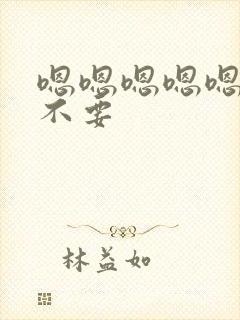 嗯嗯嗯嗯嗯
不要
林益如